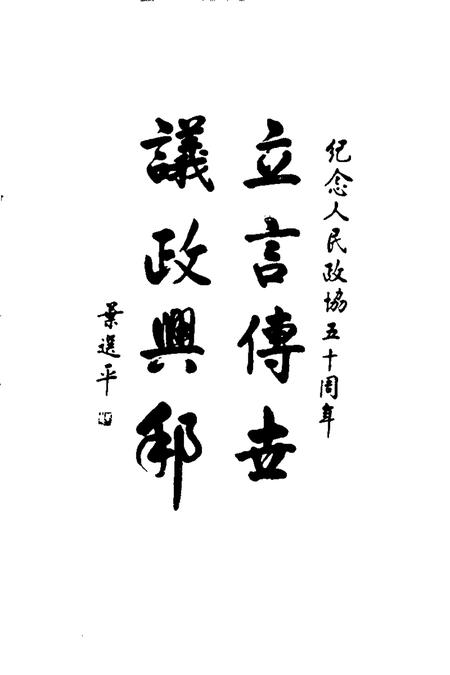 纪念人民政協五十周年
立言傳世
議政興邦
葉選平